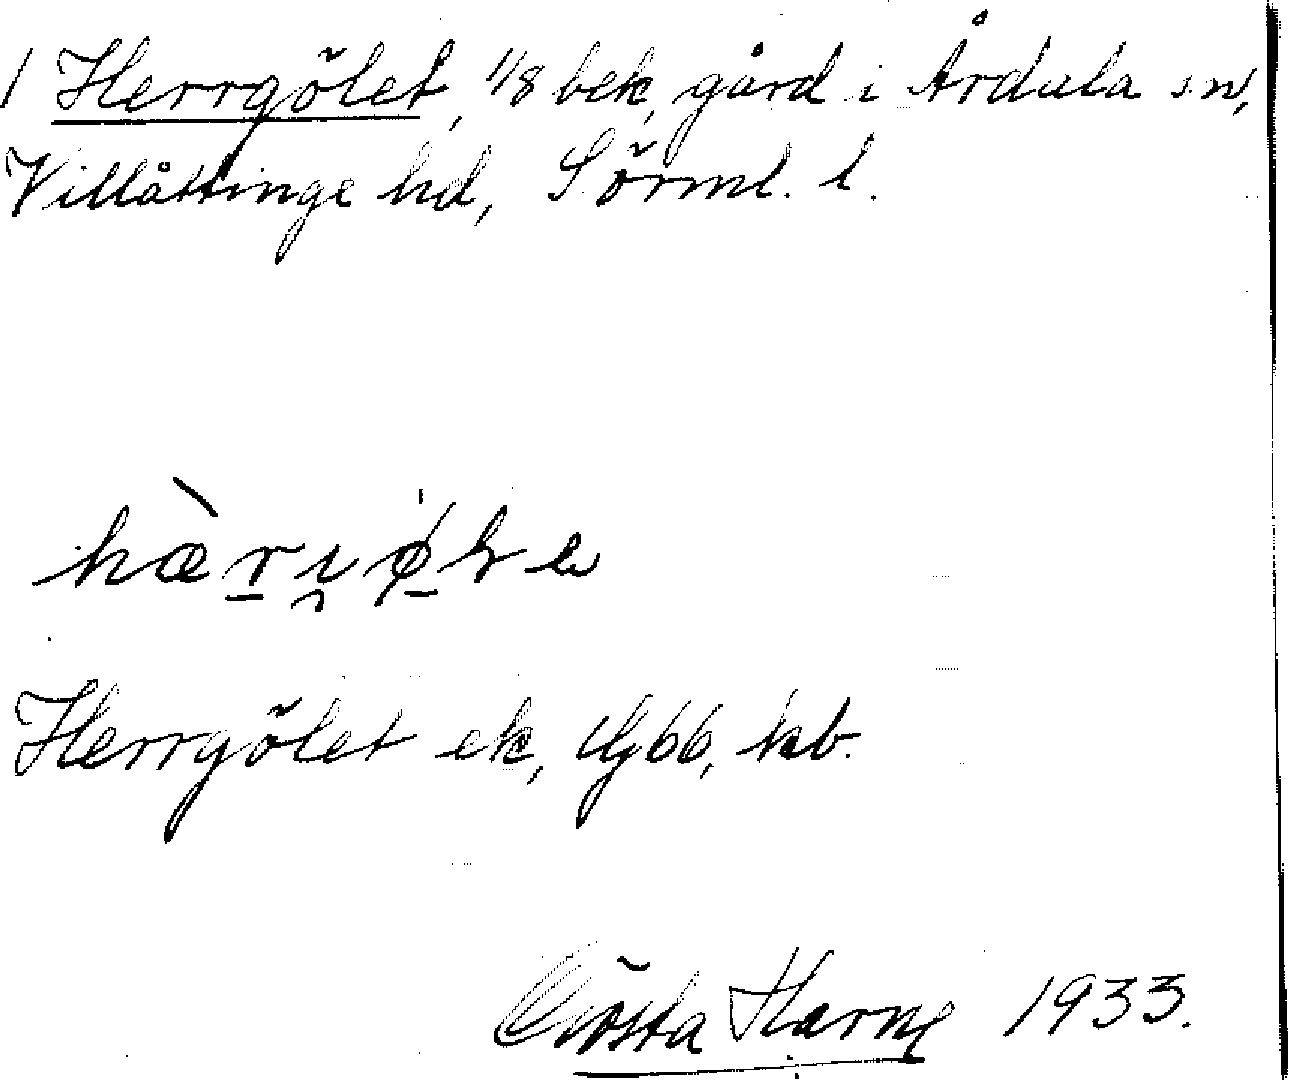 1 Herrgölet, 1/8 bek, gård i Årdala sn,
Villåttinge hd, Sörml. l.
Herrgölet ek, 66, kb.
Gösta Harne 1933.